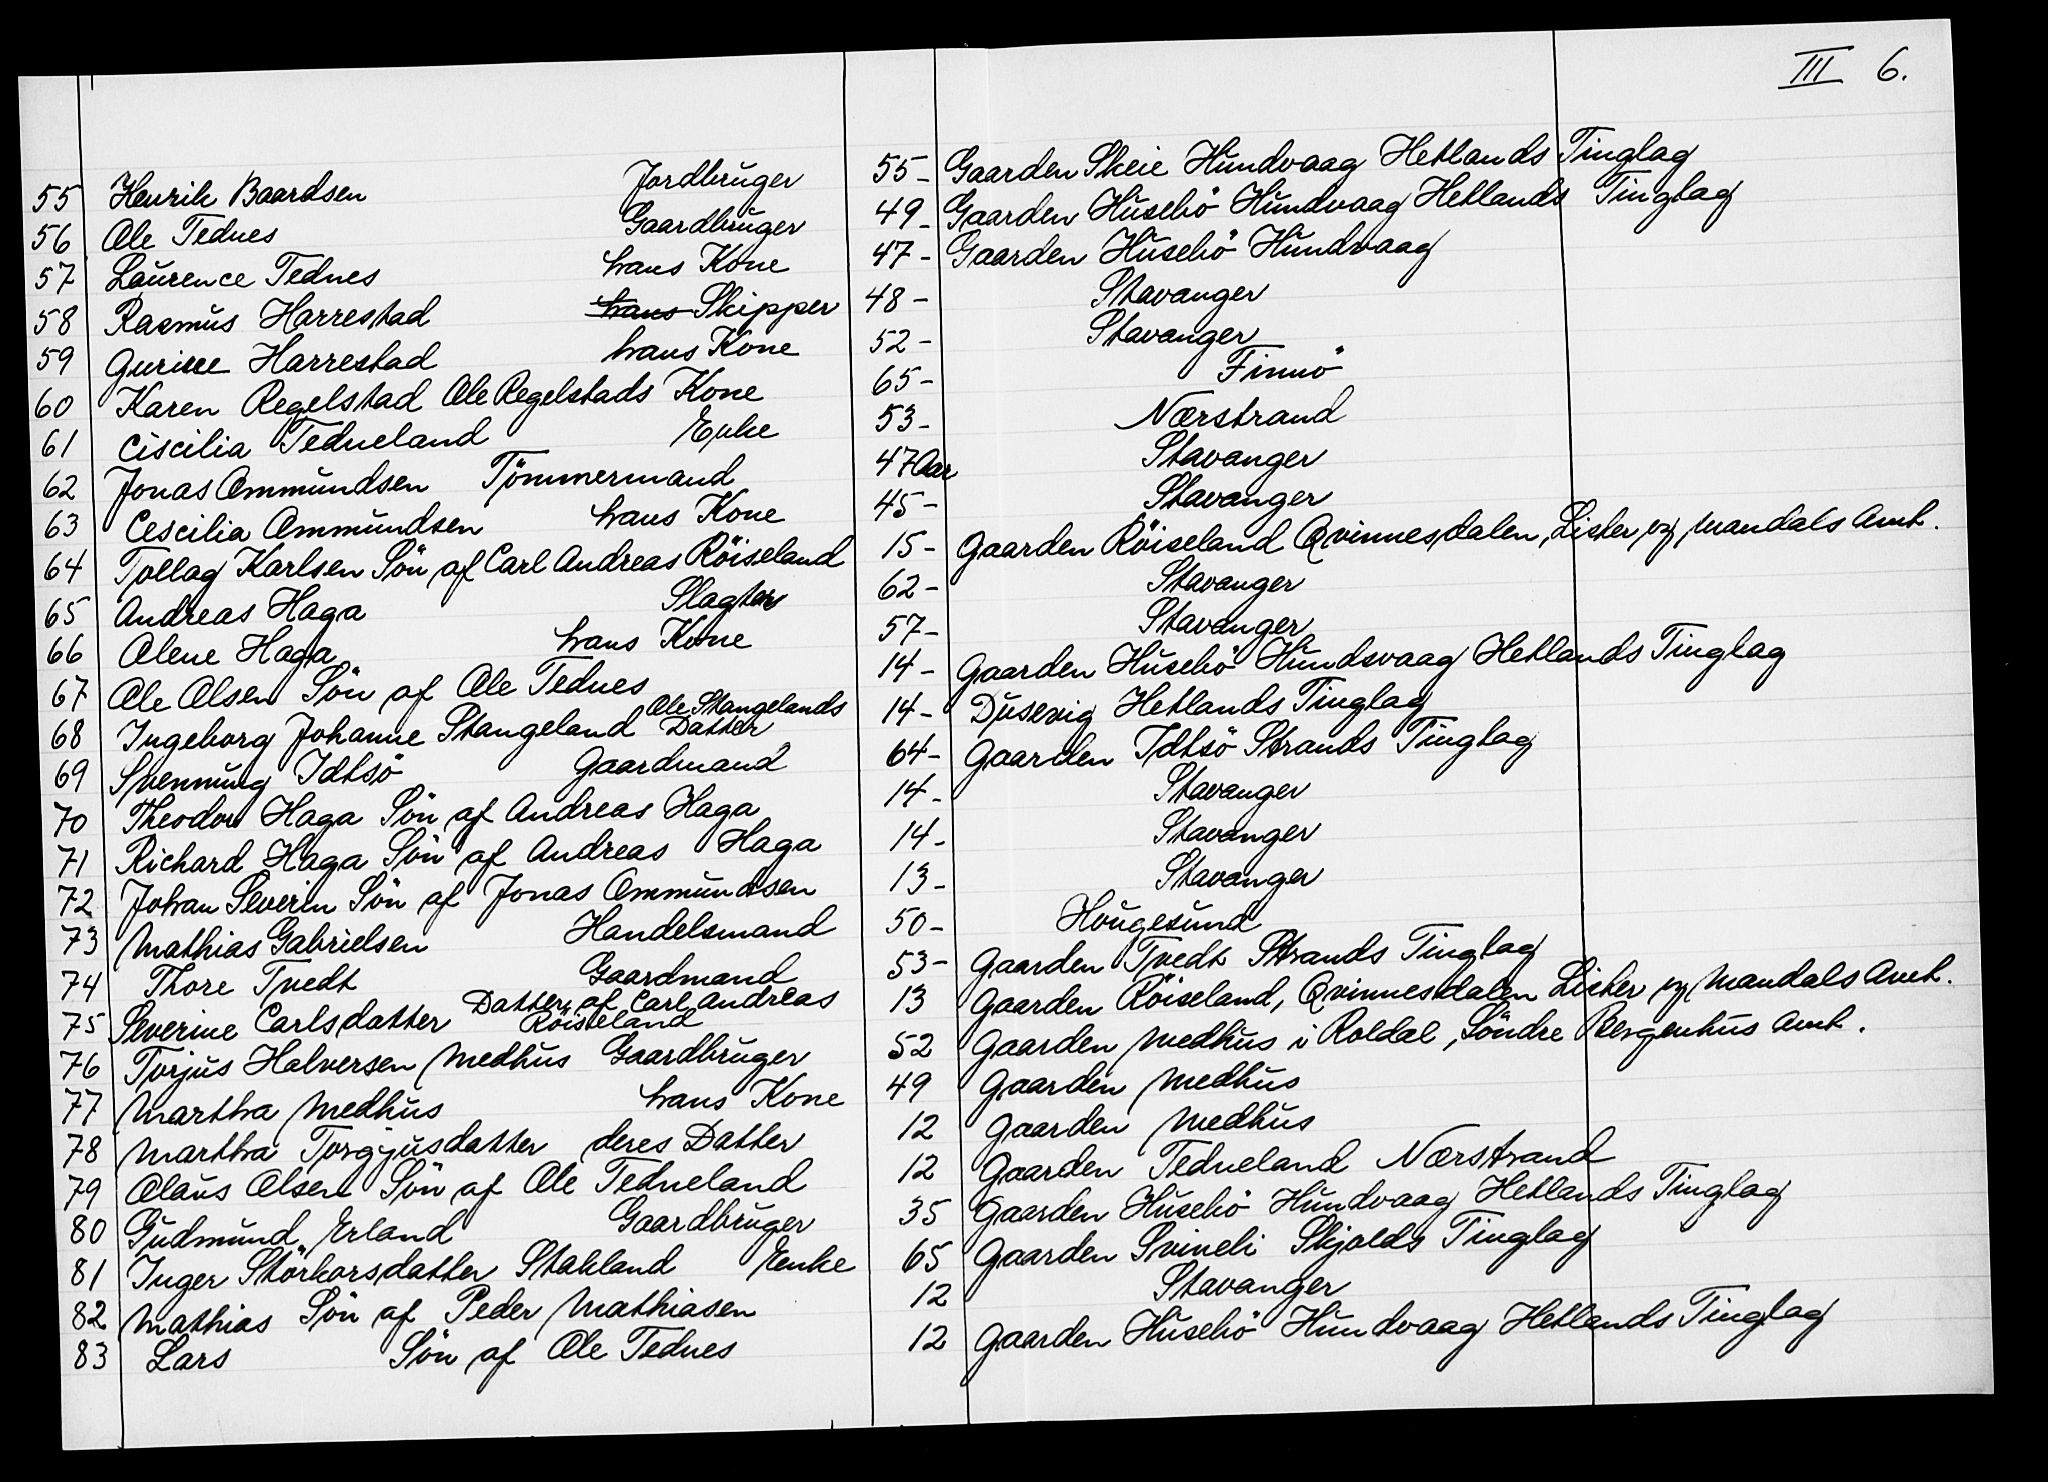 III 6.
55 Henrik Baardsen Jordbruger 55- Gaarden Skeie Hundvaag Hetlands Tinglag
56 Ole Tednes Gaardbruger 49- Gaarden Husebö Hundvaag Hetlands Tinglag
57 Laurence Tednes hans Kone 47- Gaarden Husebö Hundvaag
58 Rasmus Harrestad hans Skipper 48- Stavanger
59 Gurine Harrestad hans Kone 52- Stavanger
60 Karen Regelstad Ole Regelstads Kone 65- Finnö
61 Ciscilia Tedneland Enke 53- Nærstrand
62 Jonas Ommundsen Tömmermand 47 Aar Stavanger
63 Cescilia Ommundsen hans Kone 45- Stavanger
64 Tollag Karlsen Sön af Carl Andreas Röiseland 15- Gaarden Röiseland Qvinnesdalen, Lister og Mandals Amt.
65 Andreas Haga Slagter 62- Stavanger
66 Olene Haga hans Kone 57- Stavanger
67 Ole Olsen Sön af Ole Tednes 14- Gaarden Husebö Hundsvaag Hetlands Tinglag
68 Ingeborg Johanne Stangeland Ole Stangelands Datter 14- Dusevig Hetlands Tinglag
69 Svennung Idtsö Gaardmand 64- Gaarden Idtsö Strands Tinglag
70 Theodor Haga Sön af Andreas Haga 14- Stavanger
71 Richard Haga Sön af Andreas Haga 14- Stavanger
72 Johan Severin Sön af Jonas Ommundsen 13- Stavanger
73 Mathias Gabrielsen Handelsmand 50- Hougesund
74 Thore Tvedt Gaardmand 53- Gaarden Tvedt Strands Tinglag
75 Severine Carlsdatter Datter af Carl Andreas Röiseland 13 Gaarden Röiseland, Qvinnesdalen Lister og Mandals Amt.
76 Torjus Halversen Medhus Gaardbruger 52 Gaarden Medhus i Roldal, Söndre Bergenhus Amt.
77 Martha Medhus hans Kone 49 Gaarden Medhus
78 Martha Torgjusdatter deres Datter 12 Gaarden Medhus
79 Olaus Olsen Sön af Ole Tedneland 12 Gaarden Tedneland Nærstrand
80 Gudmund Erland Gaardbruger 35 Gaarden Husebö Hundvaag Hetlands Tinglag
81 Inger Störkorsdatter Stakland Enke 65 Gaarden Svineli Skjolds Tinglag
82 Mathias Sön af Peder Mathiasen 12 Stavanger
83 Lars Sön af Ole Tednes 12 Gaarden Husebö Hundvaag Hetlands Tinglag